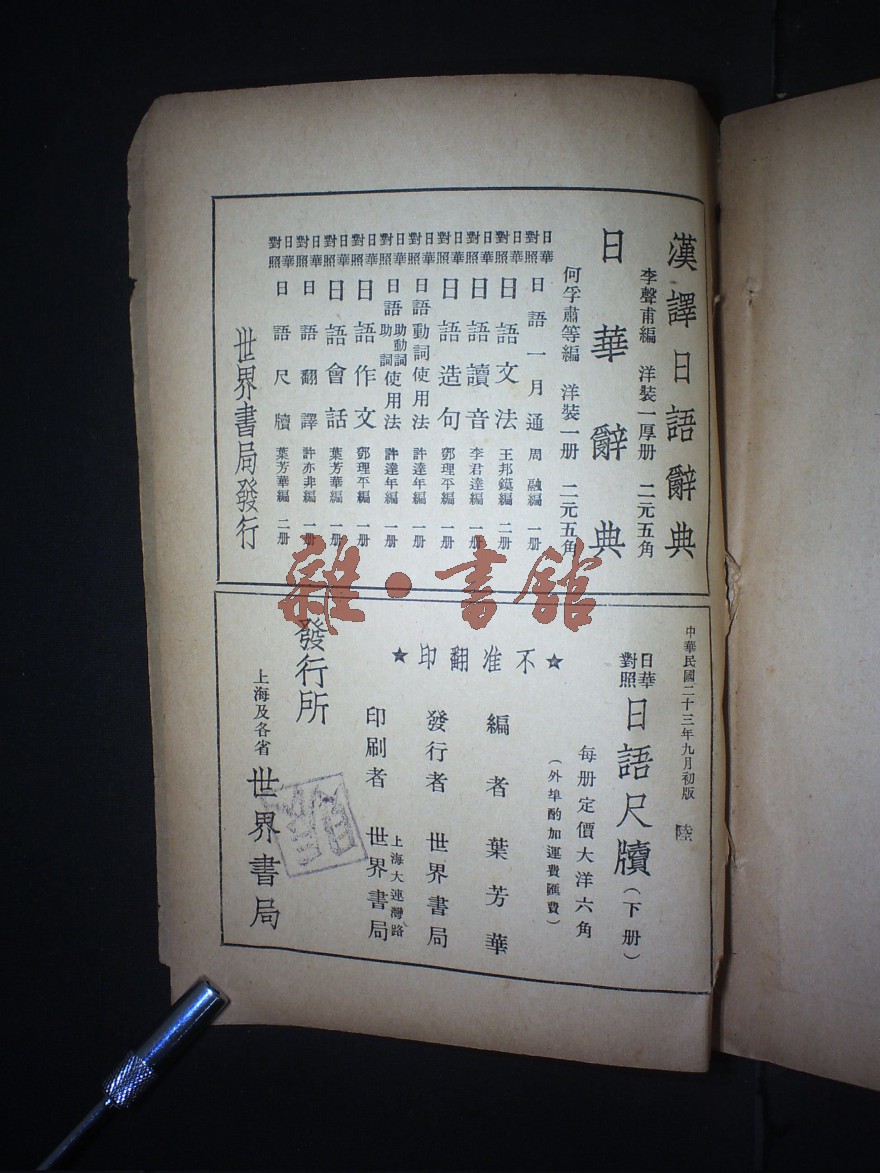 漢譯日語辭典
李聲甫編 洋裝一厚册 二元五角
日華辭典
何孚肅等編 洋裝一册 二元五角
日華對照 日語一月通 周融編 一册
日華對照 日語文法 王邦鏌編 二册
日華對照 日語讀音 李君達編 一册
日華對照 日語造句 鄧理平編 一册
日華對照 日語動詞使用法 許達年編 一册
日華對照 日語助動詞助詞使用法 許達年編 一册
日華對照 日語作文 鄧理平編 一册
日華對照 日語會話 葉芳華編 一册
日華對照 日語翻譯 許亦非編 一册
日華對照 日語尺牘 葉芳華編 二册
世界書局發行
中華民國二十三年九月初版 陸
日華對照 日語尺牘(下册)
每册定價大洋六角
(外埠酌加運費匯費)
★不准翻印★
編者 葉芳華
發行者 世界書局
印刷者 上海大連灣路 世界書局
發行所 上海及各省 世界書局
雜·書館